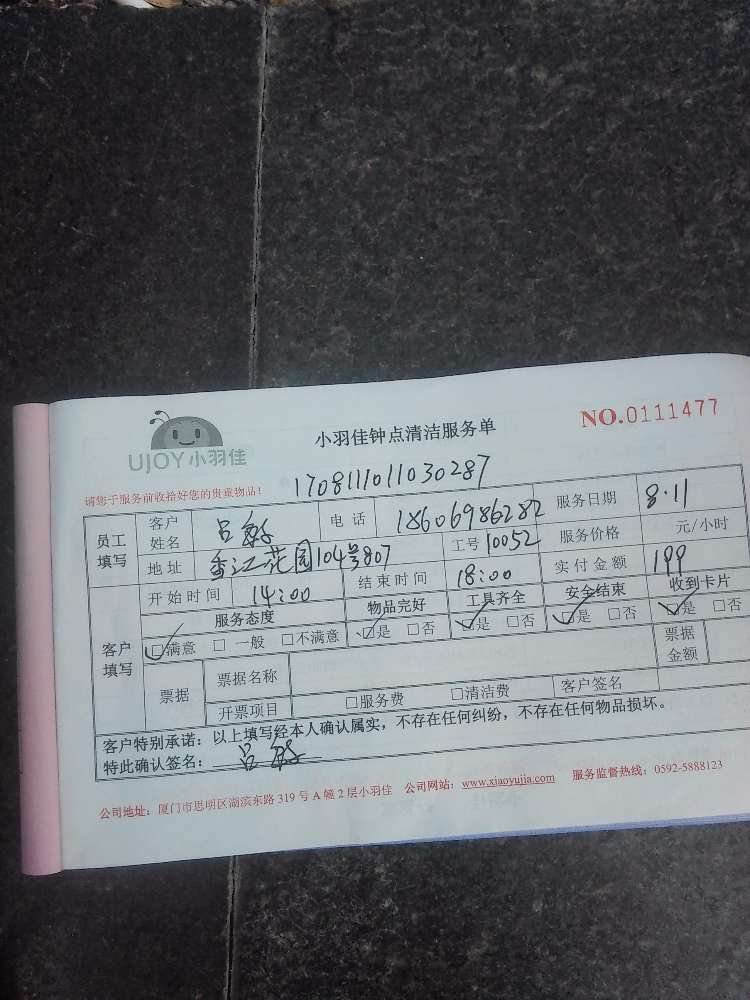 UJOY小羽佳
小羽佳钟点清洁服务单
NO.0111477
请您于服务前收拾好您的贵重物品!
170811011030287
员工填写 客户姓名 吕 电话 18606986282 服务日期 8·11
地址 香江花园104号807 工号 10052 服务价格 元/小时
客户填写 开始时间 14:00 结束时间 18:00 实付金额 199
服务态度 物品完好 工具齐全 安全结束 收到卡片
☑满意 □一般 □不满意 ☑是 □否 ☑是 □否 ☑是 □否 ☑是 □否
票据 票据名称 票据金额
开票项目 □服务费 □清洁费 客户签名
客户特别承诺:以上填写经本人确认属实,不存在任何纠纷,不存在任何物品损坏。
特此确认签名: 吕
公司地址:厦门市思明区湖滨东路 319 号 A 幢 2 层小羽佳 公司网站:www.xiaoyujia.com 服务监督热线:0592-5888123